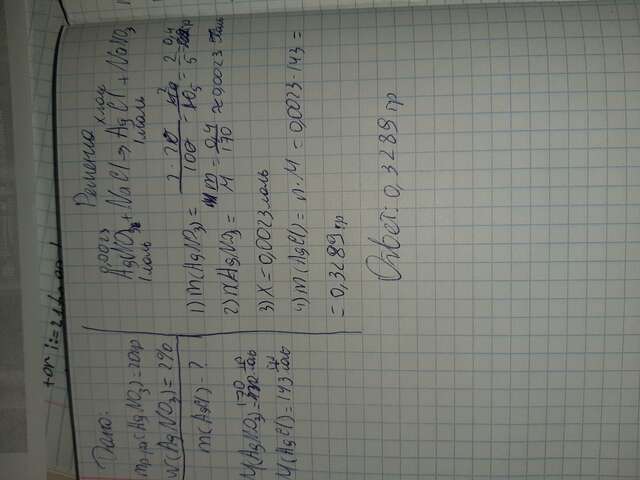 Дано:
mр-ра(AgNO3)=20гр
w(AgNO3)=2%
m(AgCl)-?
M(AgNO3)=170 гр/моль
M(AgCl)=143 гр/моль
Решение
0,0023 x моль
AgNO3+NaCl→AgCl+NaNO3
1 моль 1 моль
1) m(AgNO3)= 2·20/100 = 2/5 = 0,4 гр
2) n(AgNO3)= m/M = 0,4/170 ≈0,0023 моль
3) X=0,0023 моль
4) m(AgCl)=n·M=0,0023·143=
=0,3289 гр
Ответ: 0,3289 гр